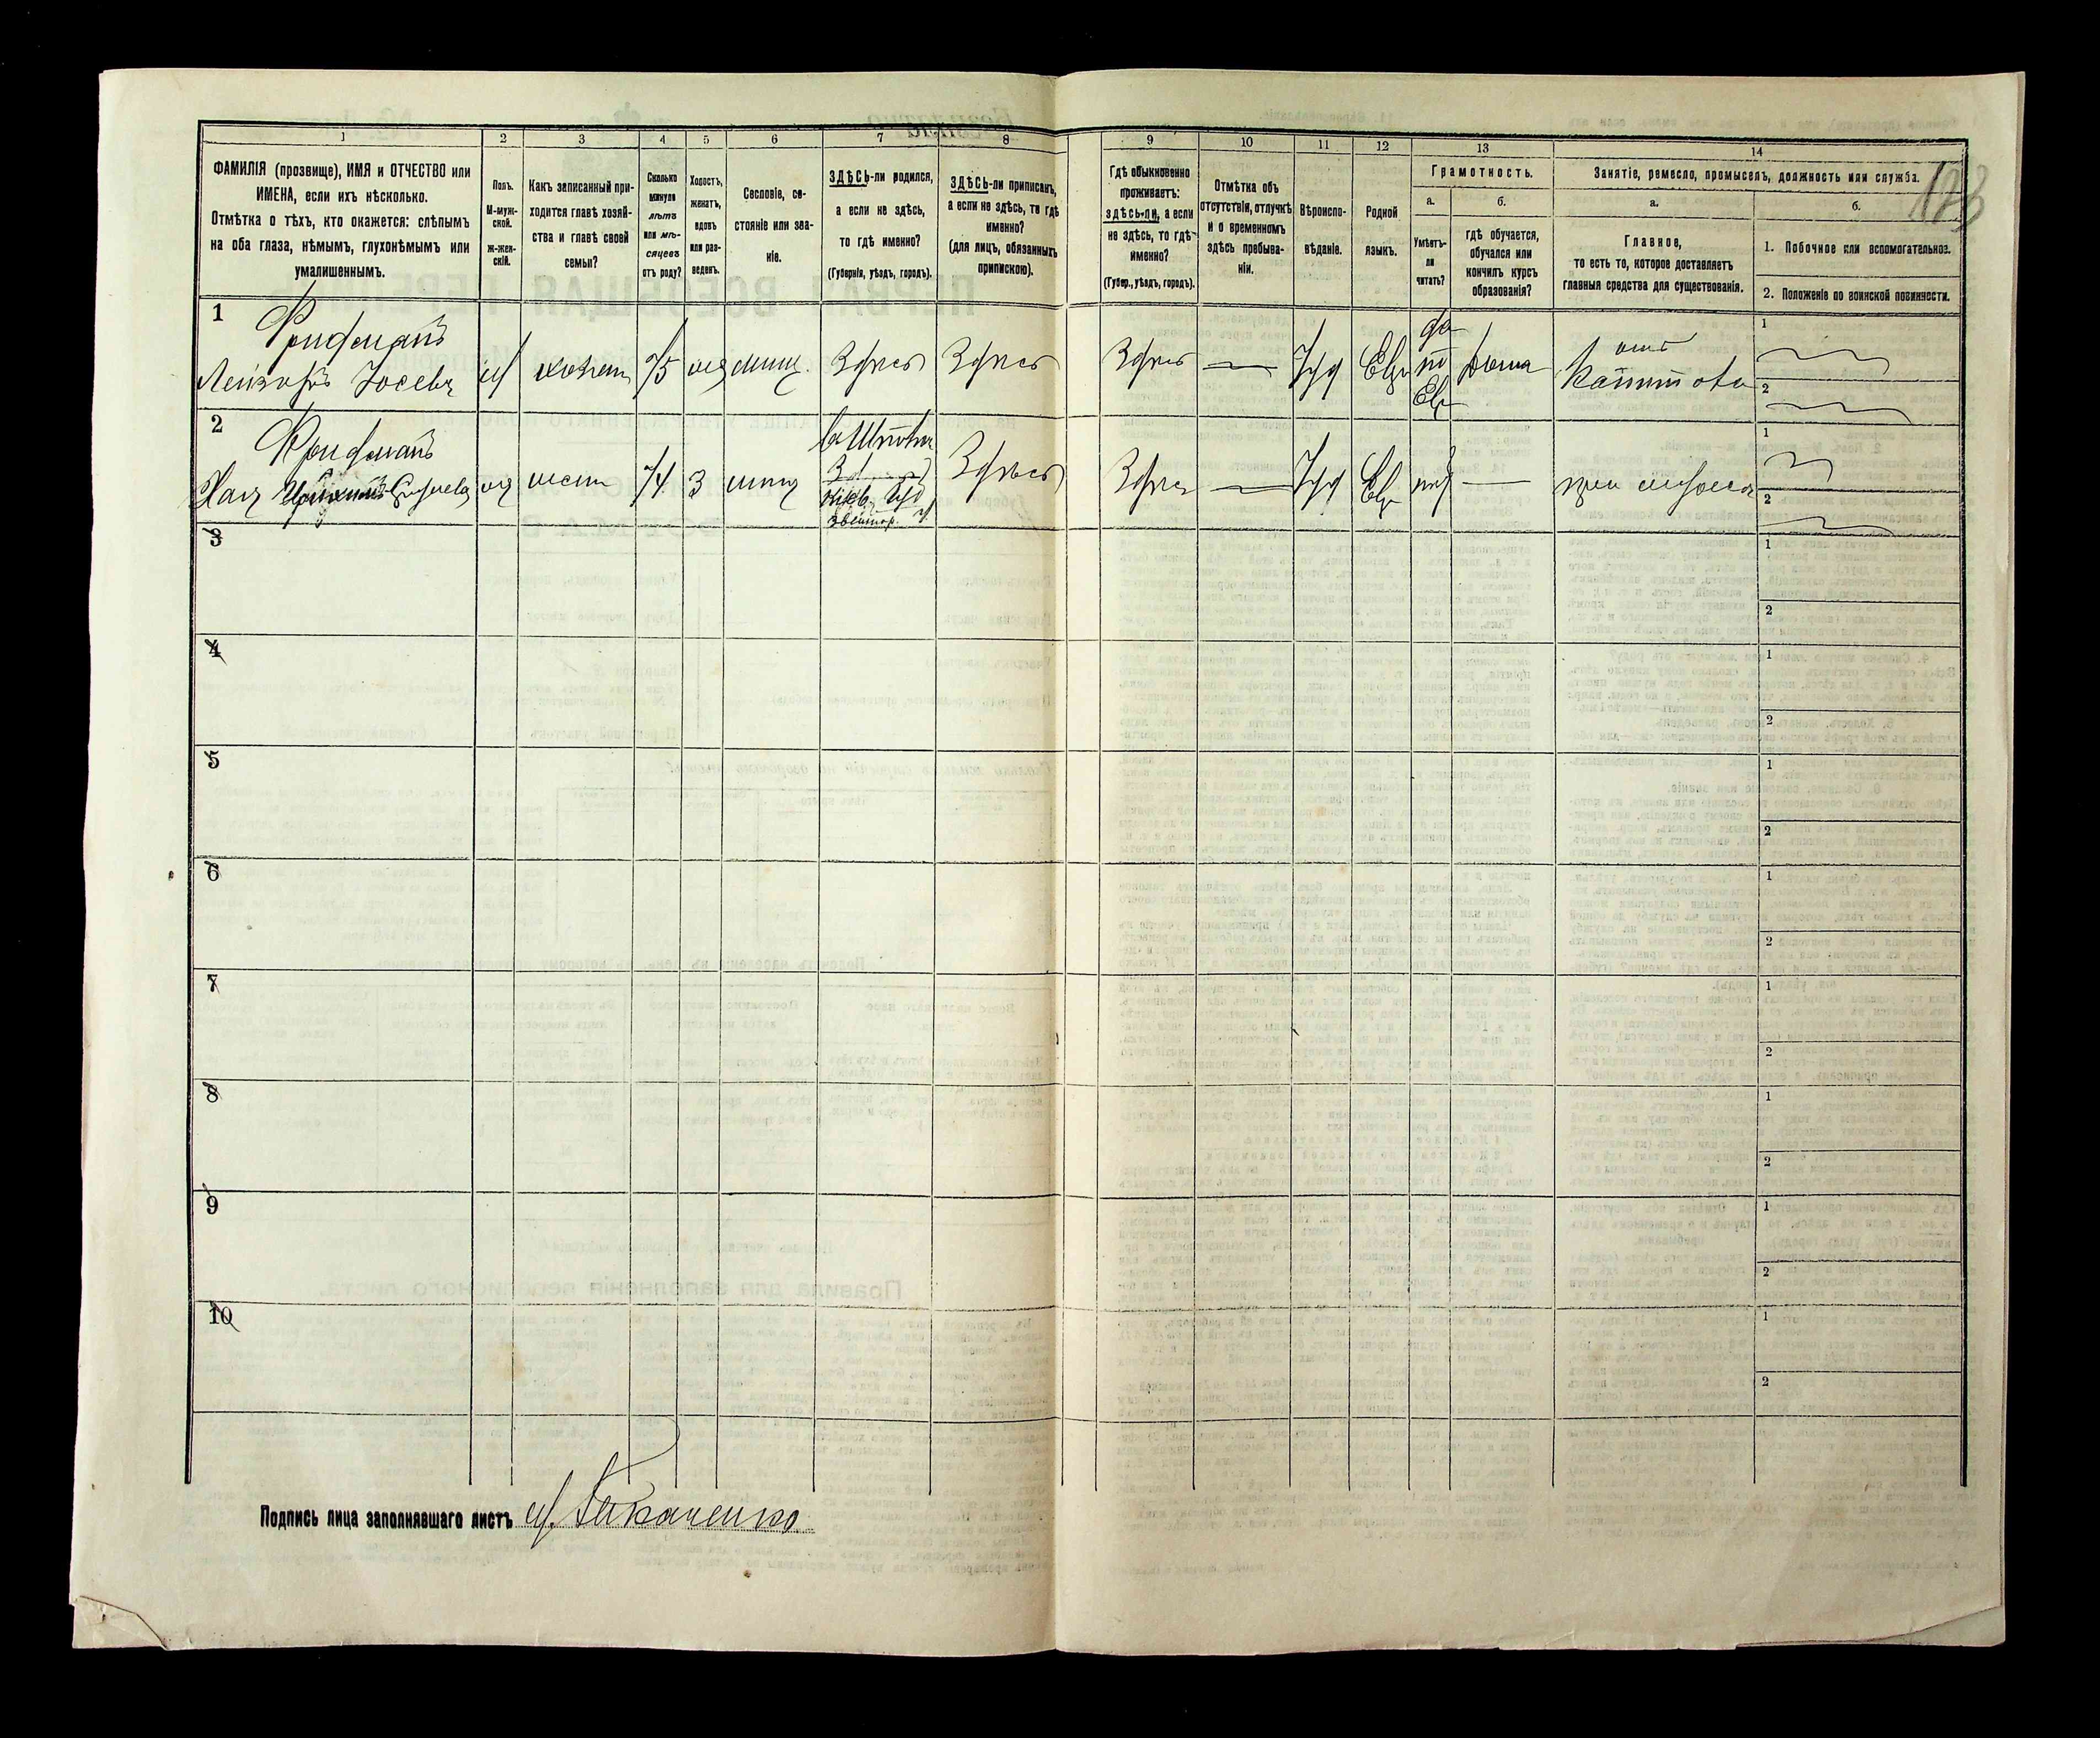 1
2
3
4
5
6
7
8
9
10
11
12
13
14
ФАМИЛІЯ (прозвище), ИМЯ и ОТЧЕСТВО или
ИМЕНА, если ихъ нѣсколько.
Отмѣтка о тѣхъ, кто окажется: слѣпымъ
на оба глаза, нѣмымъ, глухонѣмымъ или
умалишеннымъ.
Полъ.
М-муж-
ской.
ж-жен-
скій.
Какъ записанный при-
ходится главѣ хозяй-
ства и главѣ своей
семьи?
Сколько
минуло
лѣтъ
или мѣ-
сяцевъ
отъ роду?
Холостъ,
женатъ,
вдовъ
или раз-
веденъ.
Сословіе, со-
стояніе или зва-
ніе.
ЗДѢСЬ-ли родился,
а если не здѣсь,
то гдѣ именно?
(Губернія, уѣздъ, городъ).
ЗДѢСЬ-ли приписанъ,
а если не здѣсь, то гдѣ
именно?
(для лицъ, обязанныхъ
припискою).
Гдѣ обыкновенно
проживаетъ:
здѣсь-ли, а если
не здѣсь, то гдѣ
именно?
(Губер., уѣздъ, городъ).
Отмѣтка объ
отсутствіи, отлучкѣ
и о временномъ
здѣсь пребыва-
ніи.
Вѣроиспо-
вѣданіе.
Родной
языкъ.
Грамотность.
а.
Умѣетъ-
ли
читать?
б.
гдѣ обучается,
обучался или
кончилъ курсъ
образованія?
Занятіе, ремесло, промыселъ, должность или служба.
а.
Главное,
то есть то, которое доставляетъ
главныя средства для существованія.
б.
1. Побочное или вспомогательное.
2. Положеніе по воинской повинности.
1
Фридманъ
Лейзоръ Іосевъ
м
хозяин
75
мѣщ.
Здѣсь
Здѣсь
Здѣсь
—
Іуд
Евр
да
Евр
дома
1
2
2
Фридманъ
Хая
жена
74
3
мѣщ
Здѣсь
Здѣсь
—
Іуд
Евр
нѣт
—
при мужѣ
1
2
3
1
2
4
1
2
5
1
2
6
1
2
7
1
2
8
1
2
9
1
2
10
1
2
Подпись лица заполнявшаго листъ